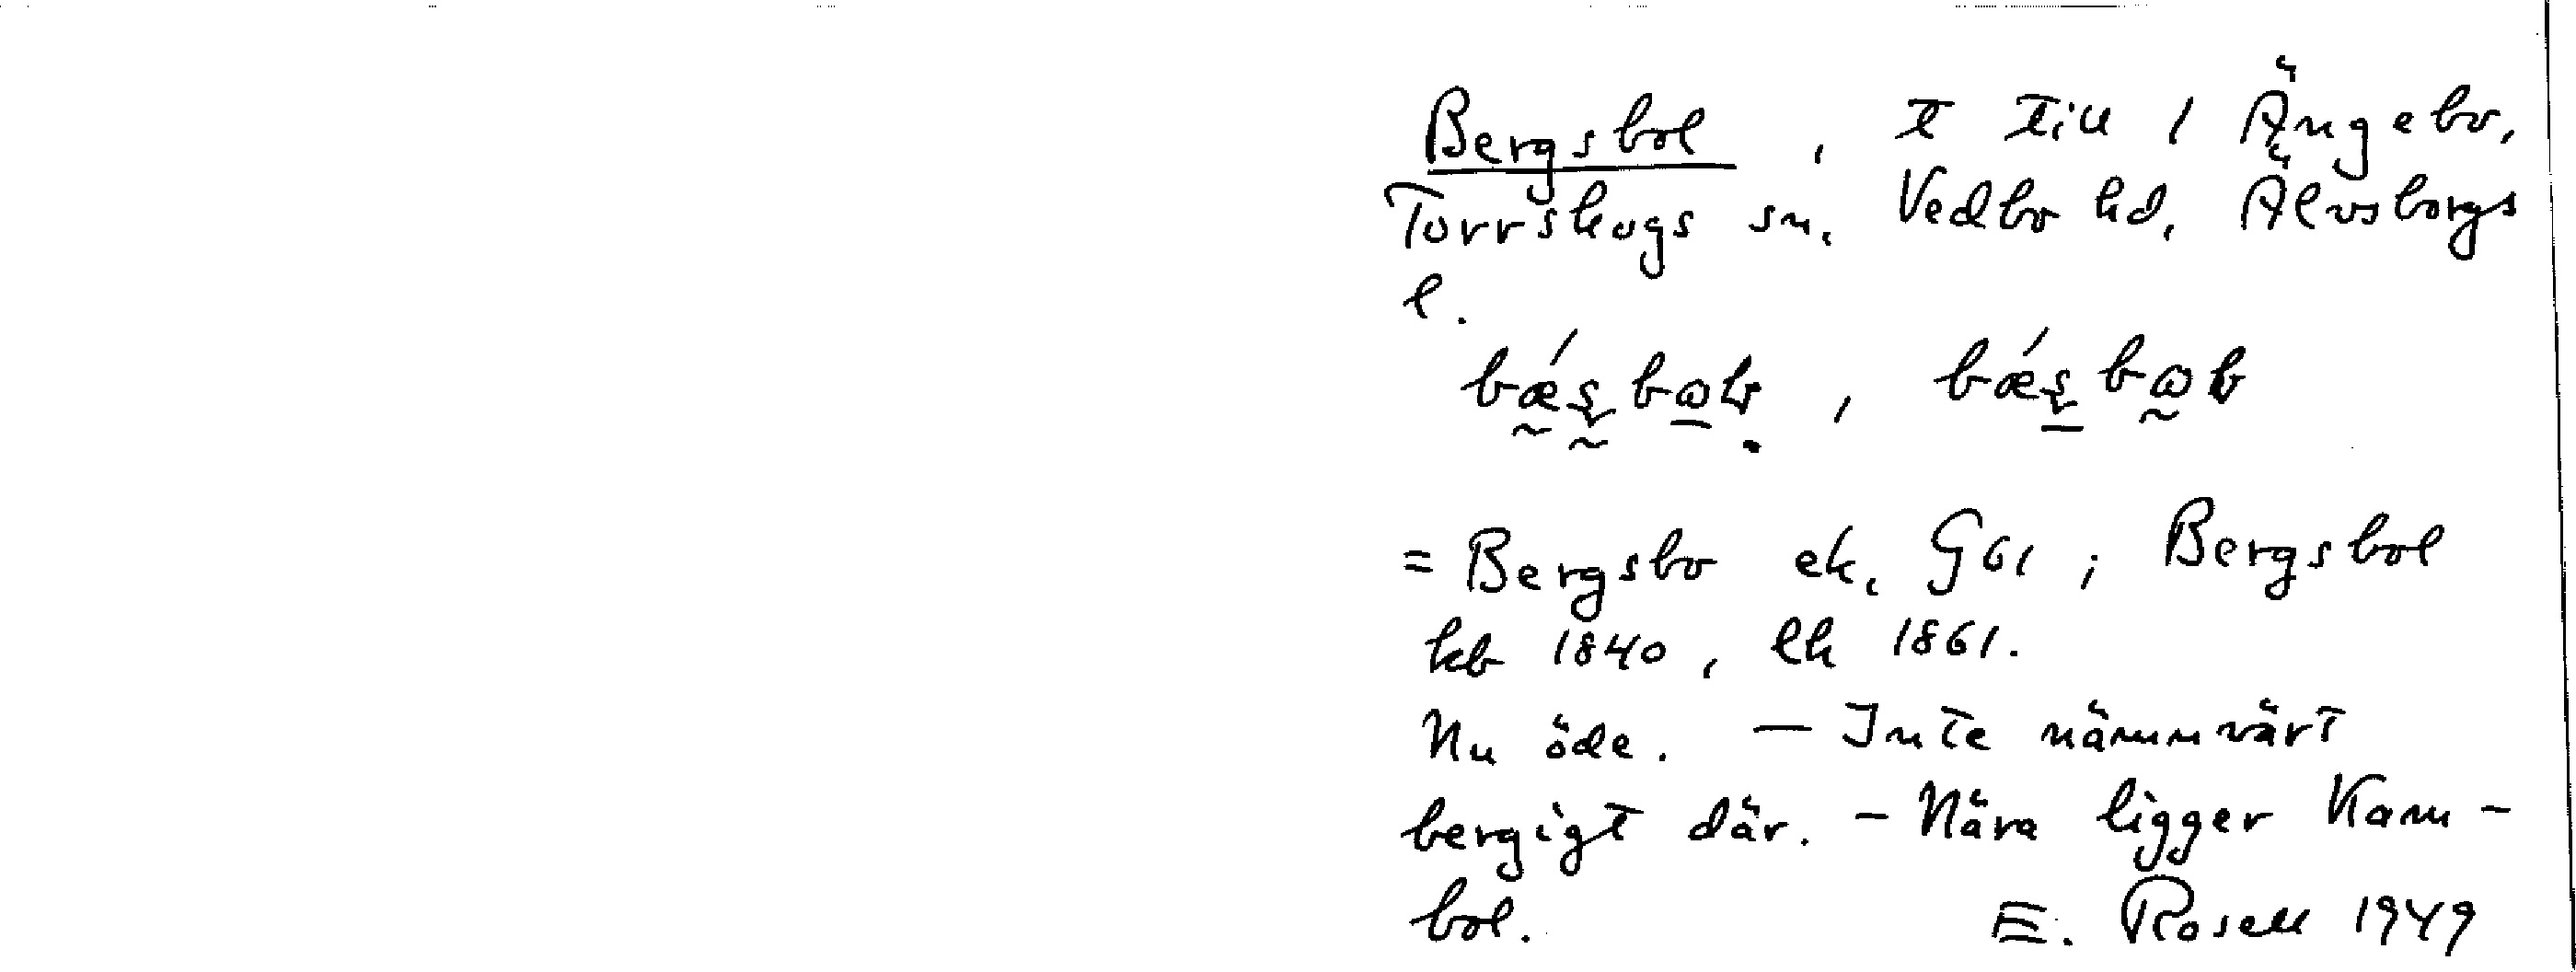 Bergsbol, t till 1 Ängebo,
Torrskogs sn. Vedbo hd, Älvsborgs
l.
= Bergsbo ek. G61; Bergsbol
kb 1840, lk 1861.
Nu öde. — Inte nämnvärt
bergigt där. - Nära ligger Kam-
bol. E. Rosell 1949